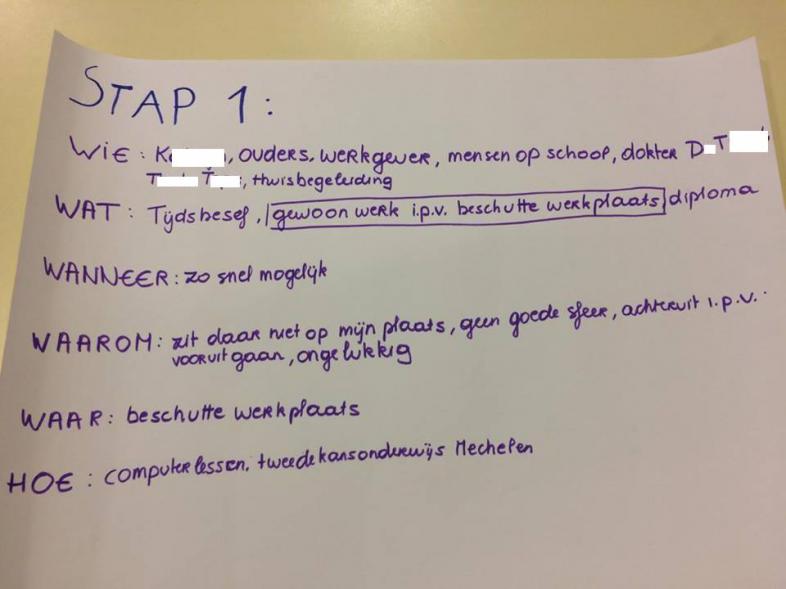 STAP 1:
WIE: K , ouders, werkgever, mensen op school, dokter D T
T T , thuisbegeleiding
WAT: Tijdsbesef, gewoon werk i.p.v. beschutte werkplaats, diploma
WANNEER: zo snel mogelijk
WAAROM: zit daar niet op mijn plaats, geen goede sfeer, achteruit i.p.v.
vooruit gaan, ongelukkig
WAAR: beschutte werkplaats
HOE: computerlessen, tweedekansonderwijs Mechelen